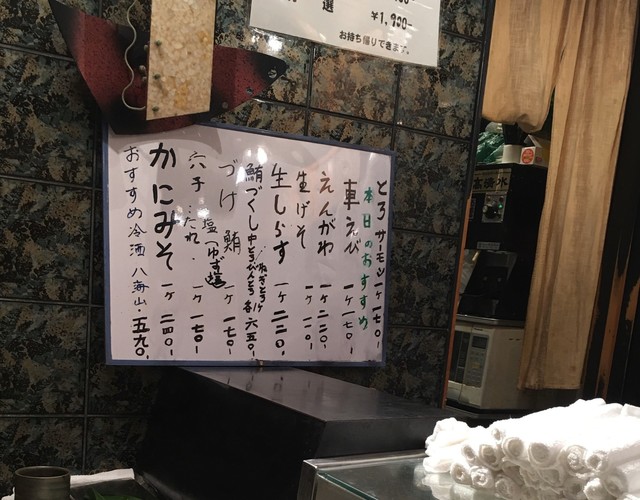 選 ¥1,900-
お持ち帰りできます。
本日のおすすめ
とろサーモン 一ケ 一七〇-
車えび 一ケ 一七〇-
えんがわ 一ケ 二二〇-
生げそ 一ケ 一一〇-
生しらす 一ケ 二二〇-
鮪づくし 中とろ びんとろ ねぎとろ 各一ケ 六五〇-
づけ鮪 一ケ 一七〇-
穴子…たれ・塩(ゆず塩) 一ケ 一七〇-
かにみそ 一ケ 二四〇-
おすすめ冷酒 八海山・五九〇-